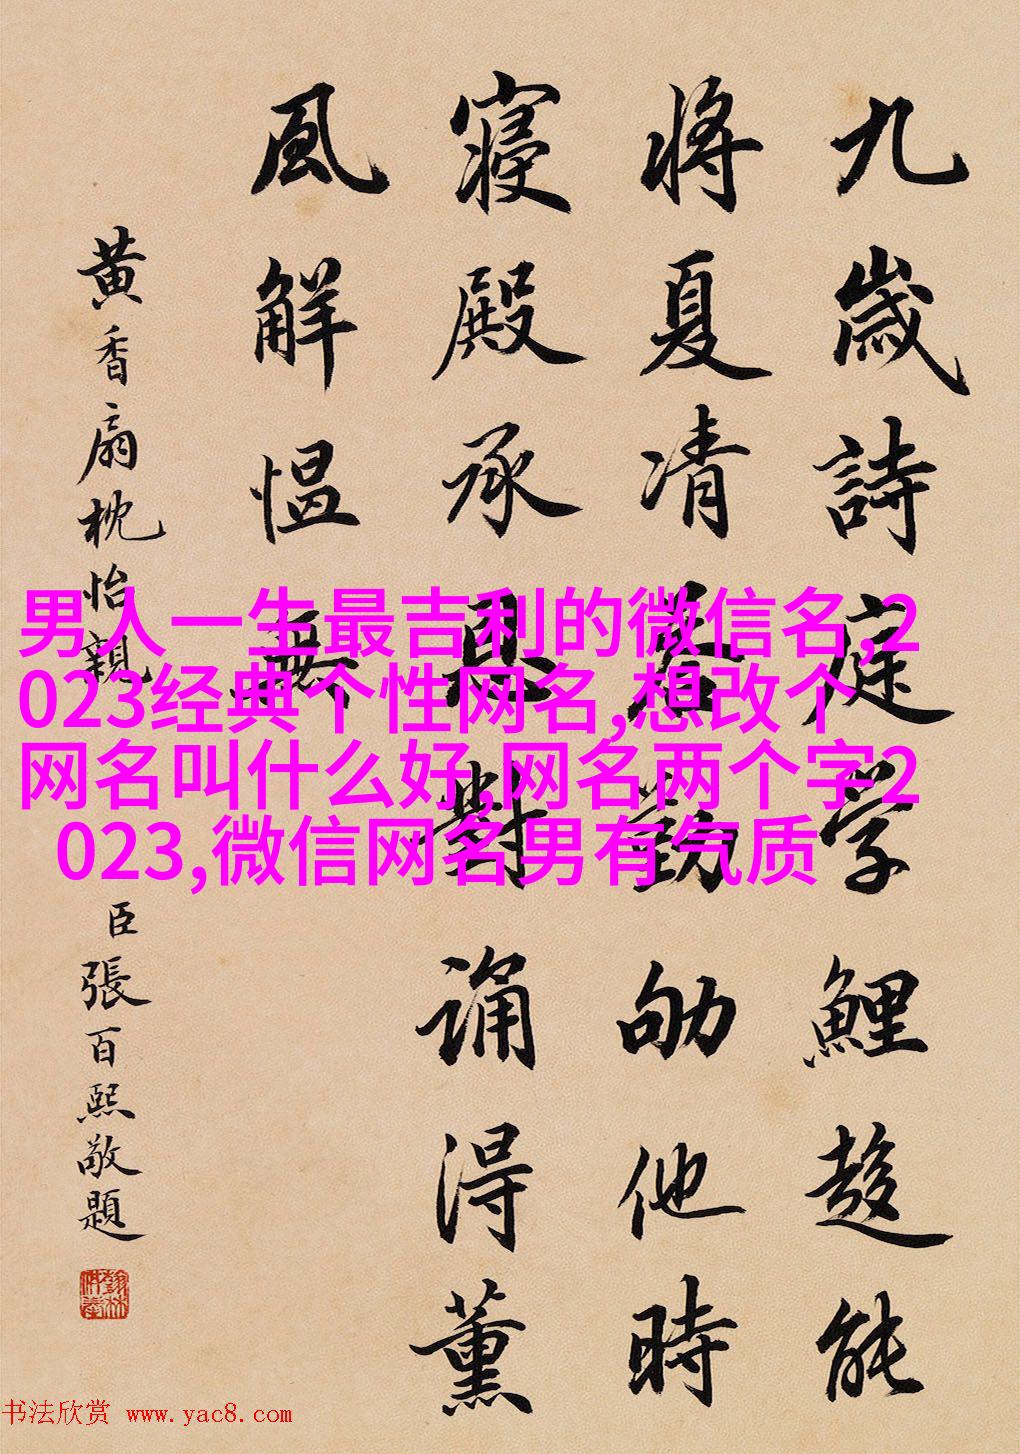 九歲詩庭學鯉趍能
將夏凊著勤劬他時
寢殿承恩對誦得薰
風解愠無
黃香扇枕怡親
臣張百熙敬題
男人一生最吉利的微信名,2
023经典个性网名,想改个
网名叫什么好,网名两个字2
023,微信网名男有气质
书法欣赏 www.yac8.com